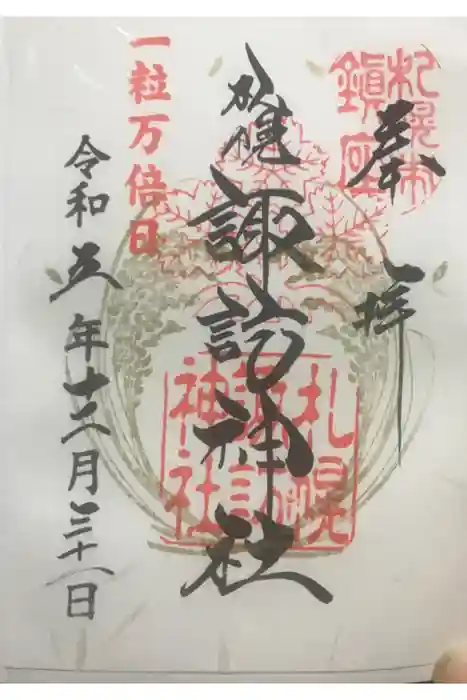 札幌市
鎮座
奉拝
札幌諏訪神社
札幌
諏訪
神社
一粒万倍日
令和五年十二月三十一日